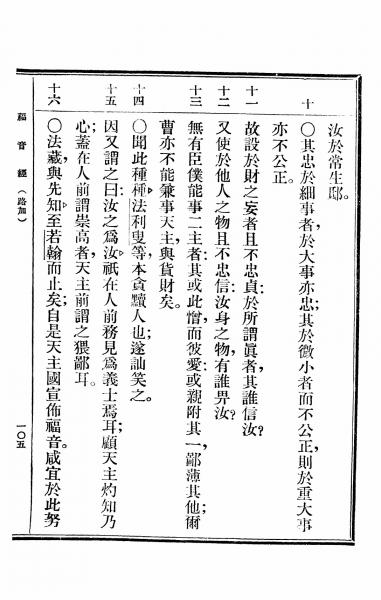 汝於常生邸。
十 〇其忠於細事者,於大事亦忠;其於微小者而不公正,則於重大事
亦不公正。
十一 故設於財之妄者且不忠貞,於所謂眞者,其誰信汝?
十二 又使於他人之物且不忠信,汝身之物,有誰畀汝?
十三 無有臣僕能事二主者:其或此憎而彼愛;或親附其一,鄙薄其他;爾
曹亦不能兼事天主,與貨財矣。
十四 〇聞此種種,法利叟等,本貪黷人也;遂訕笑之。
十五 因又謂之曰:汝之爲汝,祇在人前務見爲義士焉耳;顧天主灼知乃
心;蓋在人前謂崇高者,天主前謂之猥鄙耳。
十六 〇法藏與先知,至若翰而止矣;自是天主國宣佈福音。咸宜於此努
福音經(路加) 一〇五